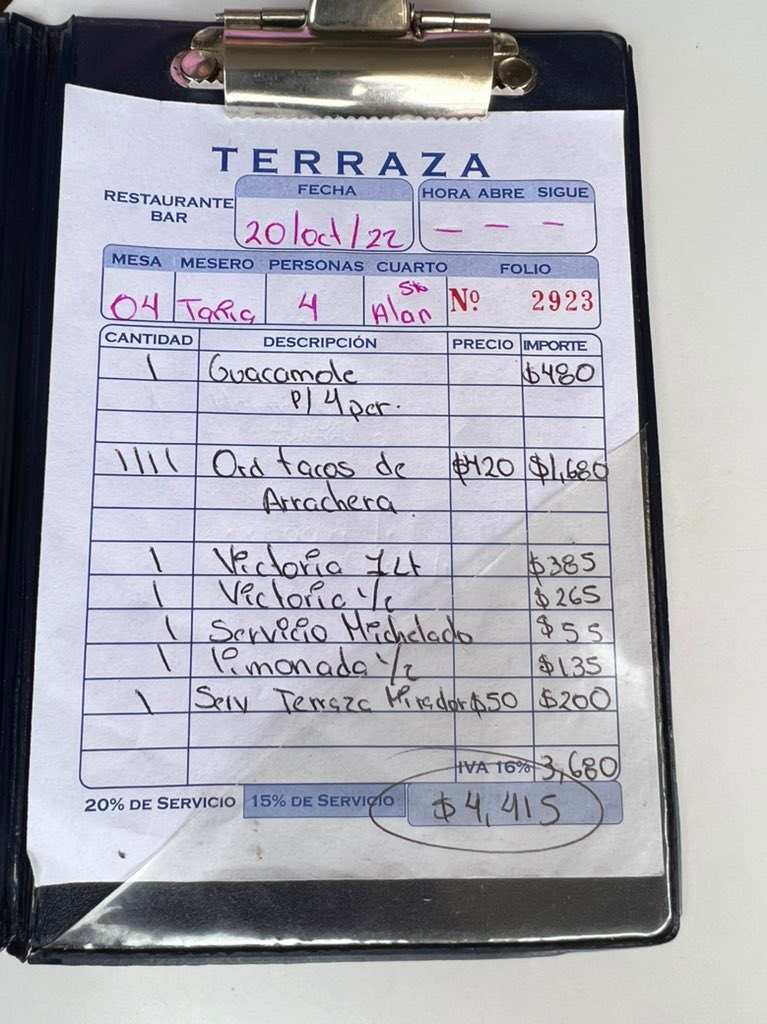 TERRAZA
RESTAURANTE BAR
FECHA
20/oct/22
HORA ABRE SIGUE
— — —
MESA MESERO PERSONAS CUARTO FOLIO
04 Tapia 4 Alan Nº 2923
CANTIDAD DESCRIPCIÓN PRECIO IMPORTE
1 Guacamole $480
P/ 4 per.
1111 Ord tacos de $420 $1,680
Arrachera
1 Victoria 1Lt $385
1 Victoria $265
1 Servicio Michelado $55
1 limonada $135
1 Serv Terraza Mirador $50 $200
IVA 16% 3,680
20% DE SERVICIO 15% DE SERVICIO $4,415